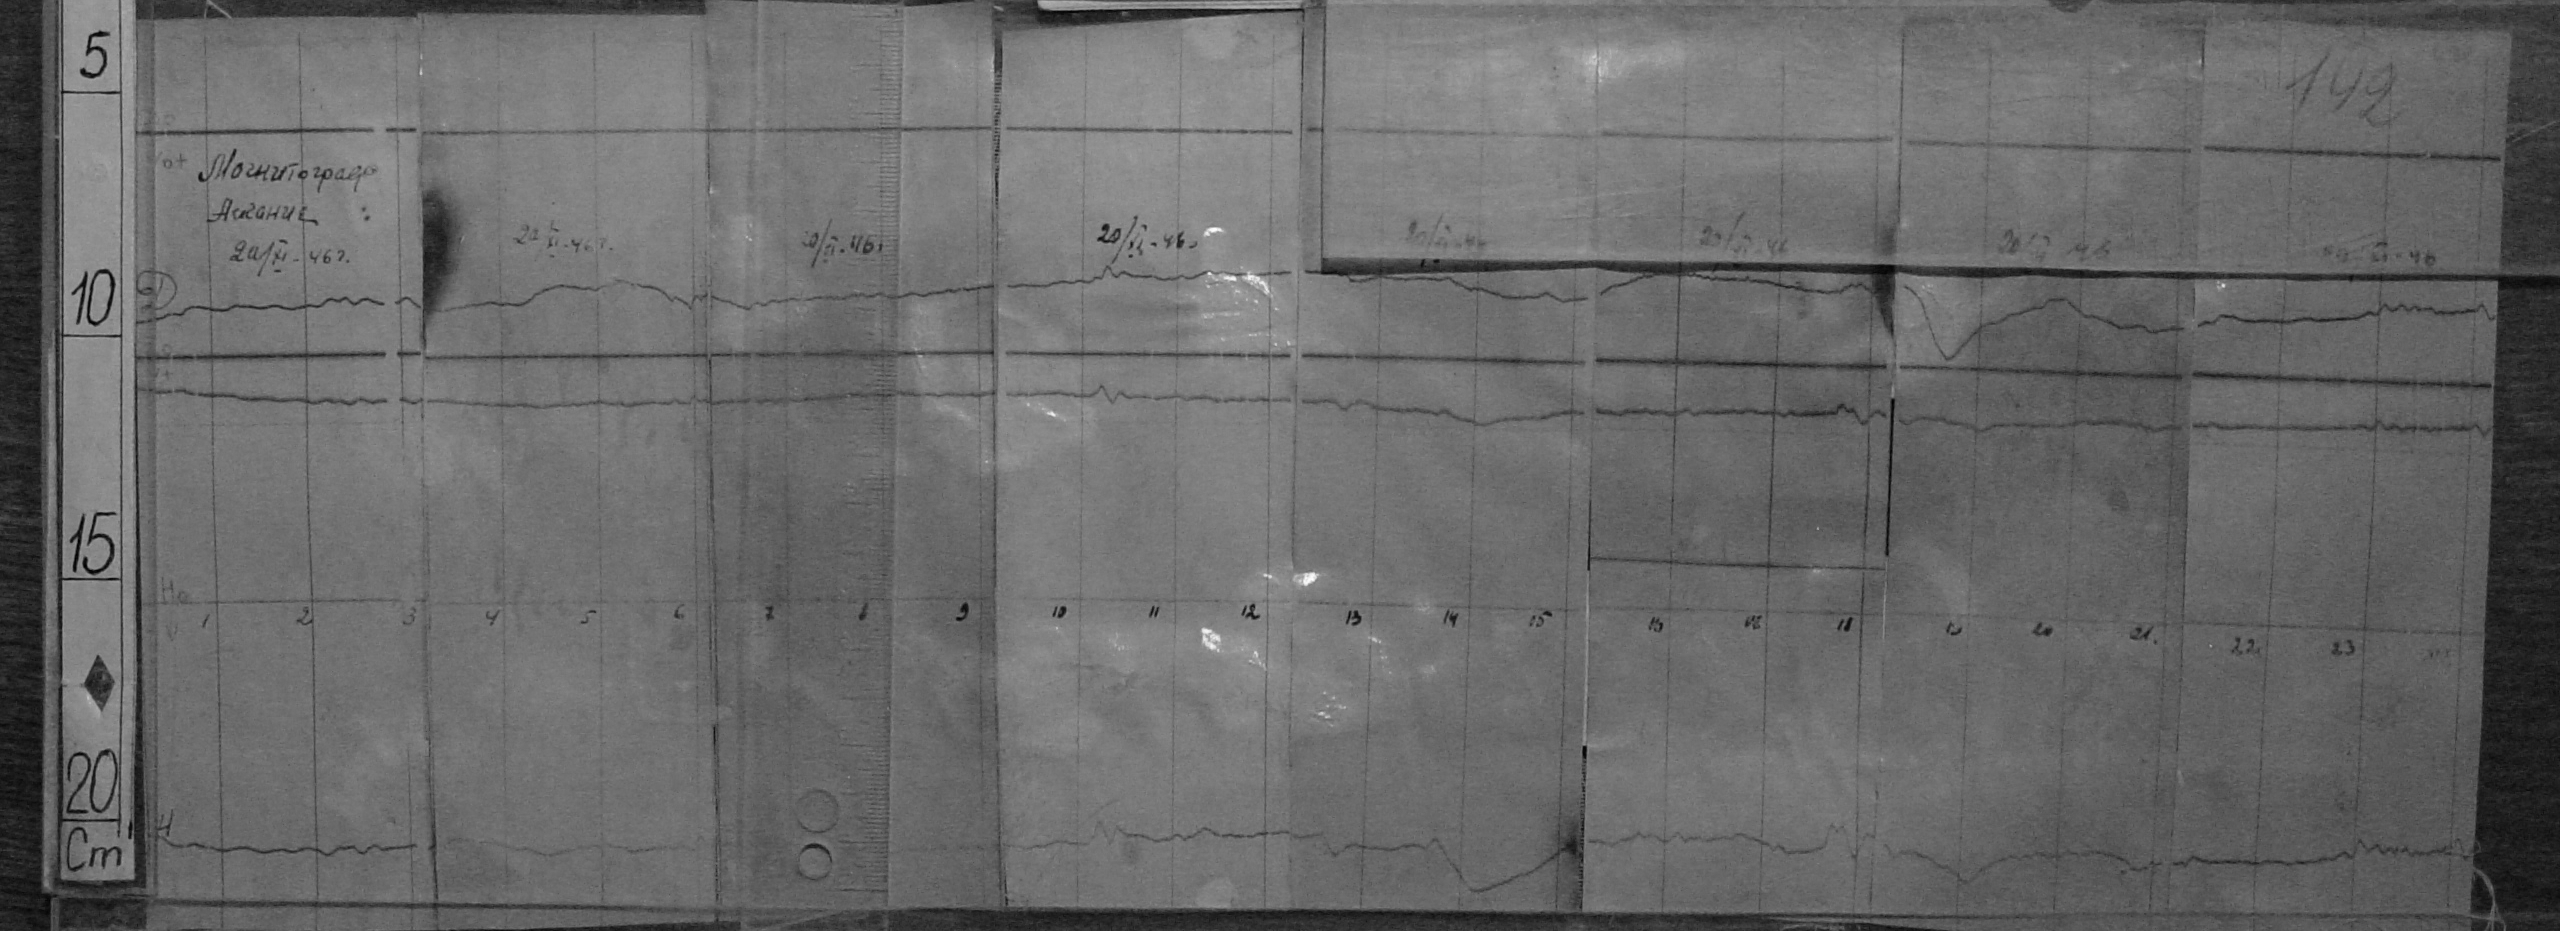 5
10
15
20
Cm
142
Магнитограф
Аскание
20/XI-46г.
20/XI-46г.
20/XI-46г
20/XI-46г
20/XI-46
20/XI-46
20/XI 46
XI-46
D
Ho
1 2 3 4 5 6 7 8 9 10 11 12 13 14 15 15 16 18 19 20 21. 22 23
H